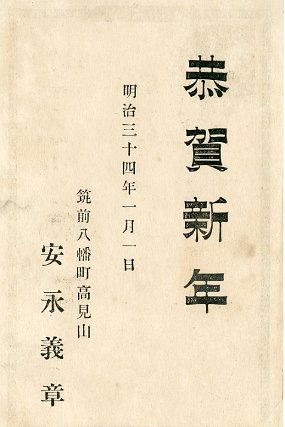 恭賀新年
明治三十四年一月一日
筑前八幡町高見山
安永義章